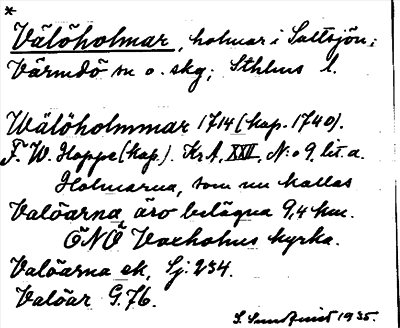 *
Välöholmar, holmar i Saltsjön;
Värmdö sn o. skg; Sthlms l.
Wälöholmmar 1714 (kap. 1740).
F. W. Hoppe (kap). Kr A, XXII, N:o 9, lit. a.
Holmarna, som nu kallas
Valöarna, äro belägna 9,4 km.
ÖNÖ Vaxholms kyrka.
Valöarna ek, Sj. 234.
Valöar G. 76.
1935.